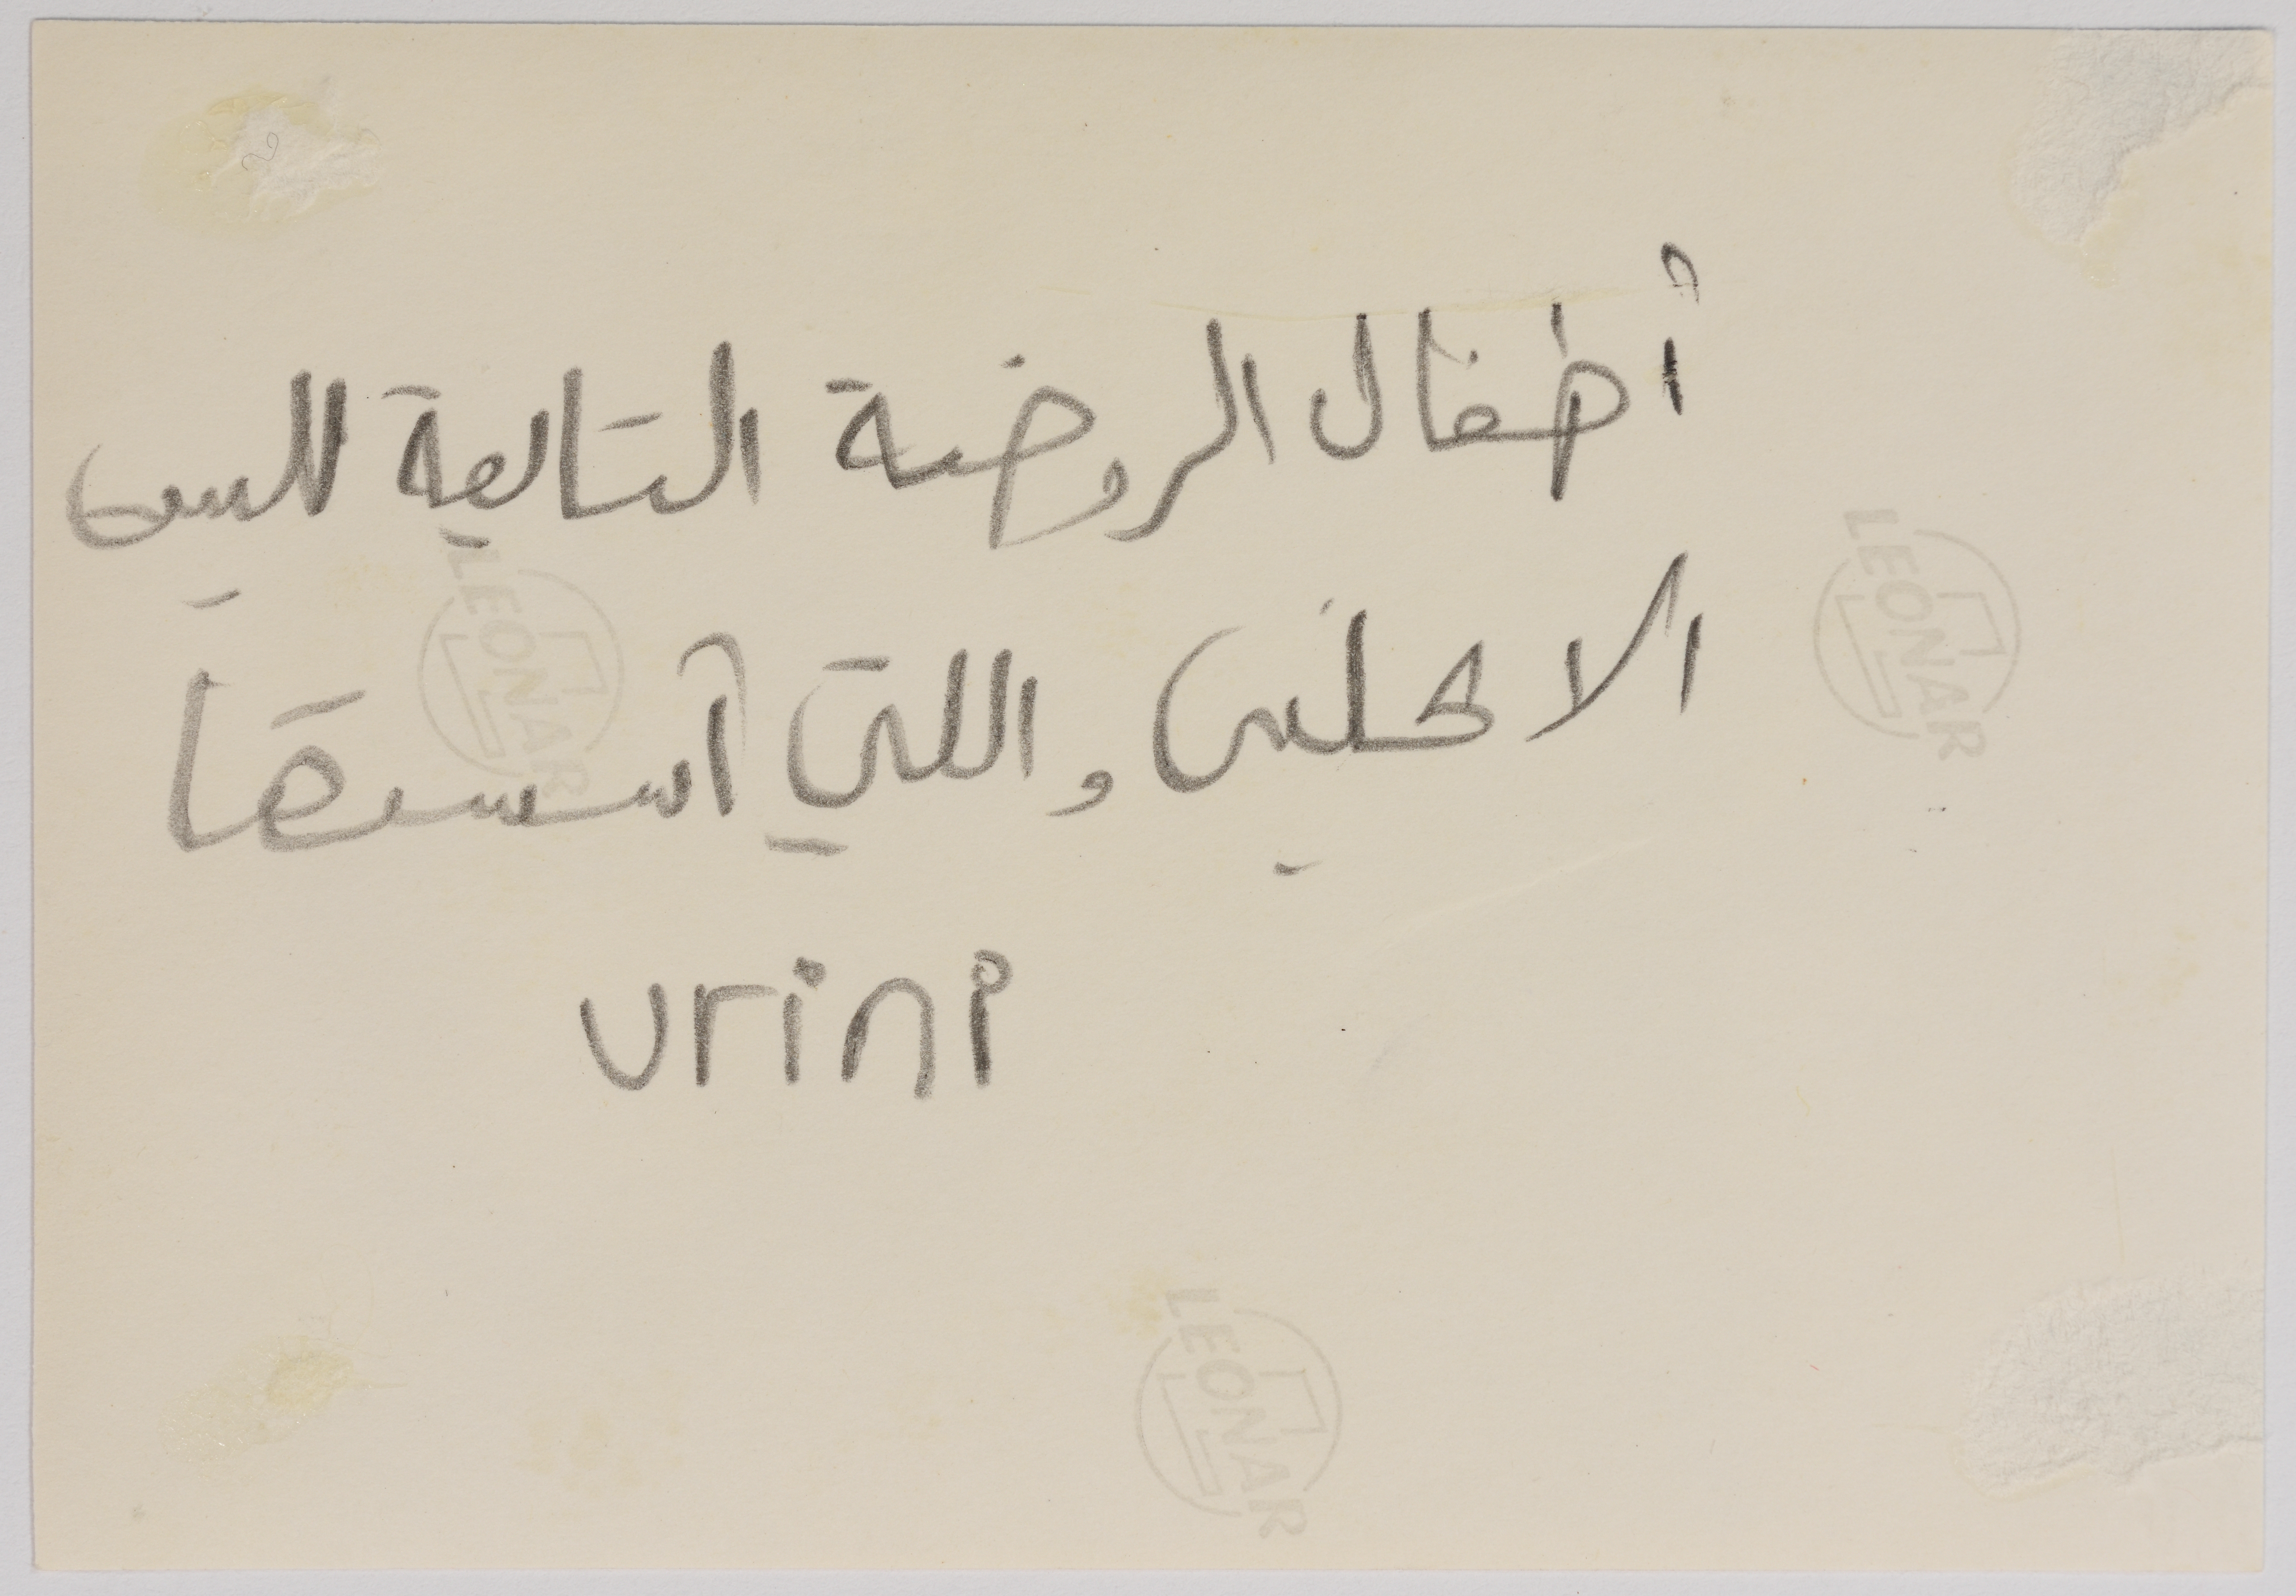 أطفال الروضة التابعة
واللتي أسستها
urini
LEONAR
LEONAR
LEONAR